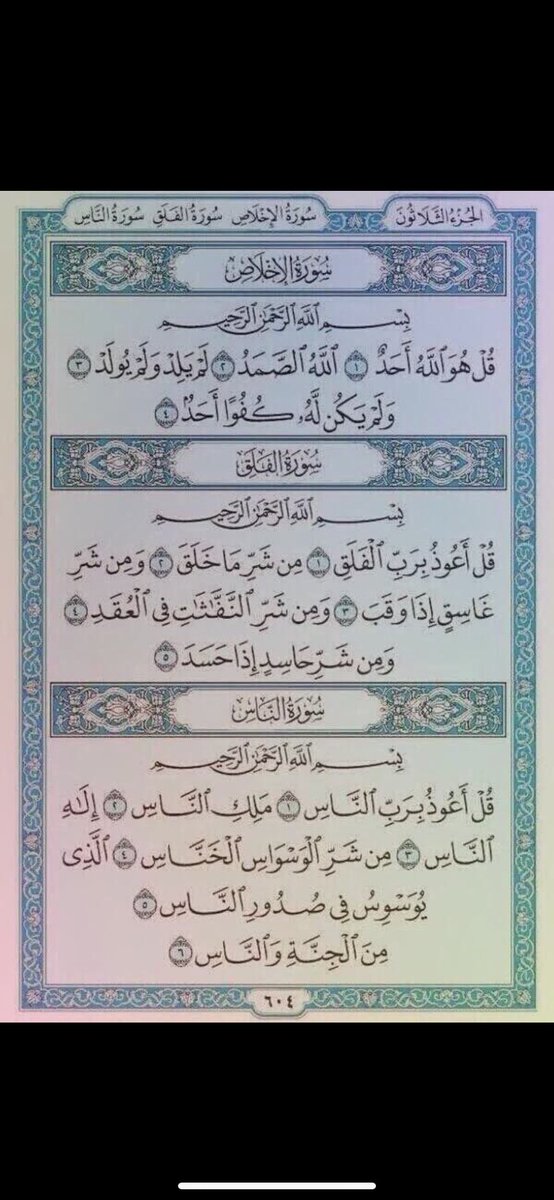 الجُزءُ الثَّلَاثُونَ سُورَةُ الإِخْلَاصِ سُورَةُ الفَلَقِ سُورَةُ النَّاسِ
سُورَةُ الإِخْلَاصِ
بِسْمِ ٱللَّهِ ٱلرَّحْمَٰنِ ٱلرَّحِيمِ
قُلْ هُوَ ٱللَّهُ أَحَدٌ ١ ٱللَّهُ ٱلصَّمَدُ ٢ لَمْ يَلِدْ وَلَمْ يُولَدْ ٣
وَلَمْ يَكُن لَّهُۥ كُفُوًا أَحَدٌۢ ٤
سُورَةُ الفَلَقِ
بِسْمِ ٱللَّهِ ٱلرَّحْمَٰنِ ٱلرَّحِيمِ
قُلْ أَعُوذُ بِرَبِّ ٱلْفَلَقِ ١ مِن شَرِّ مَا خَلَقَ ٢ وَمِن شَرِّ
غَاسِقٍ إِذَا وَقَبَ ٣ وَمِن شَرِّ ٱلنَّفَّٰثَٰتِ فِى ٱلْعُقَدِ ٤
وَمِن شَرِّ حَاسِدٍ إِذَا حَسَدَ ٥
سُورَةُ النَّاسِ
بِسْمِ ٱللَّهِ ٱلرَّحْمَٰنِ ٱلرَّحِيمِ
قُلْ أَعُوذُ بِرَبِّ ٱلنَّاسِ ١ مَلِكِ ٱلنَّاسِ ٢ إِلَٰهِ
ٱلنَّاسِ ٣ مِن شَرِّ ٱلْوَسْوَاسِ ٱلْخَنَّاسِ ٤ ٱلَّذِى
يُوَسْوِسُ فِى صُدُورِ ٱلنَّاسِ ٥
مِنَ ٱلْجِنَّةِ وَٱلنَّاسِ ٦
٦٠٤